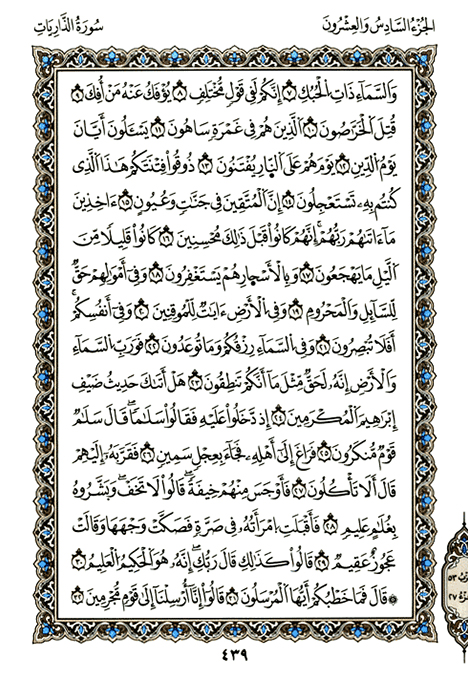 الجزء السادس والعشرون
سورة الذاريات
وَالسَّمَاءِ ذَاتِ الْحُبُكِ ٧ إِنَّكُمْ لَفِي قَوْلٍ مُّخْتَلِفٍ ٨ يُؤْفَكُ عَنْهُ مَنْ أُفِكَ ٩
قُتِلَ الْخَرَّاصُونَ ١٠ الَّذِينَ هُمْ فِي غَمْرَةٍ سَاهُونَ ١١ يَسْـَٔلُونَ أَيَّانَ
يَوْمُ الدِّينِ ١٢ يَوْمَ هُمْ عَلَى النَّارِ يُفْتَنُونَ ١٣ ذُوقُوا فِتْنَتَكُمْ هَٰذَا الَّذِي
كُنتُم بِهِۦ تَسْتَعْجِلُونَ ١٤ إِنَّ الْمُتَّقِينَ فِي جَنَّٰتٍ وَعُيُونٍ ١٥ ءَاخِذِينَ
مَا ءَاتَىٰهُمْ رَبُّهُمْ ۚ إِنَّهُمْ كَانُوا قَبْلَ ذَٰلِكَ مُحْسِنِينَ ١٦ كَانُوا قَلِيلًا مِّنَ
الَّيْلِ مَا يَهْجَعُونَ ١٧ وَبِالْأَسْحَارِ هُمْ يَسْتَغْفِرُونَ ١٨ وَفِي أَمْوَٰلِهِمْ حَقٌّ
لِّلسَّائِلِ وَالْمَحْرُومِ ١٩ وَفِي الْأَرْضِ ءَايَٰتٌ لِّلْمُوقِنِينَ ٢٠ وَفِي أَنفُسِكُمْ ۚ
أَفَلَا تُبْصِرُونَ ٢١ وَفِي السَّمَاءِ رِزْقُكُمْ وَمَا تُوعَدُونَ ٢٢ فَوَرَبِّ السَّمَاءِ
وَالْأَرْضِ إِنَّهُۥ لَحَقٌّ مِّثْلَ مَا أَنَّكُمْ تَنطِقُونَ ٢٣ هَلْ أَتَىٰكَ حَدِيثُ ضَيْفِ
إِبْرَٰهِيمَ الْمُكْرَمِينَ ٢٤ إِذْ دَخَلُوا عَلَيْهِ فَقَالُوا سَلَٰمًا ۖ قَالَ سَلَٰمٌ
قَوْمٌ مُّنكَرُونَ ٢٥ فَرَاغَ إِلَىٰ أَهْلِهِۦ فَجَاءَ بِعِجْلٍ سَمِينٍ ٢٦ فَقَرَّبَهُۥ إِلَيْهِمْ
قَالَ أَلَا تَأْكُلُونَ ٢٧ فَأَوْجَسَ مِنْهُمْ خِيفَةً ۖ قَالُوا لَا تَخَفْ ۖ وَبَشَّرُوهُ
بِغُلَٰمٍ عَلِيمٍ ٢٨ فَأَقْبَلَتِ امْرَأَتُهُۥ فِي صَرَّةٍ فَصَكَّتْ وَجْهَهَا وَقَالَتْ
عَجُوزٌ عَقِيمٌ ٢٩ قَالُوا كَذَٰلِكِ قَالَ رَبُّكِ ۖ إِنَّهُۥ هُوَ الْحَكِيمُ الْعَلِيمُ ٣٠
۞ قَالَ فَمَا خَطْبُكُمْ أَيُّهَا الْمُرْسَلُونَ ٣١ قَالُوا إِنَّا أُرْسِلْنَا إِلَىٰ قَوْمٍ مُّجْرِمِينَ ٣٢
٥٣
٢٧
٤٣٩